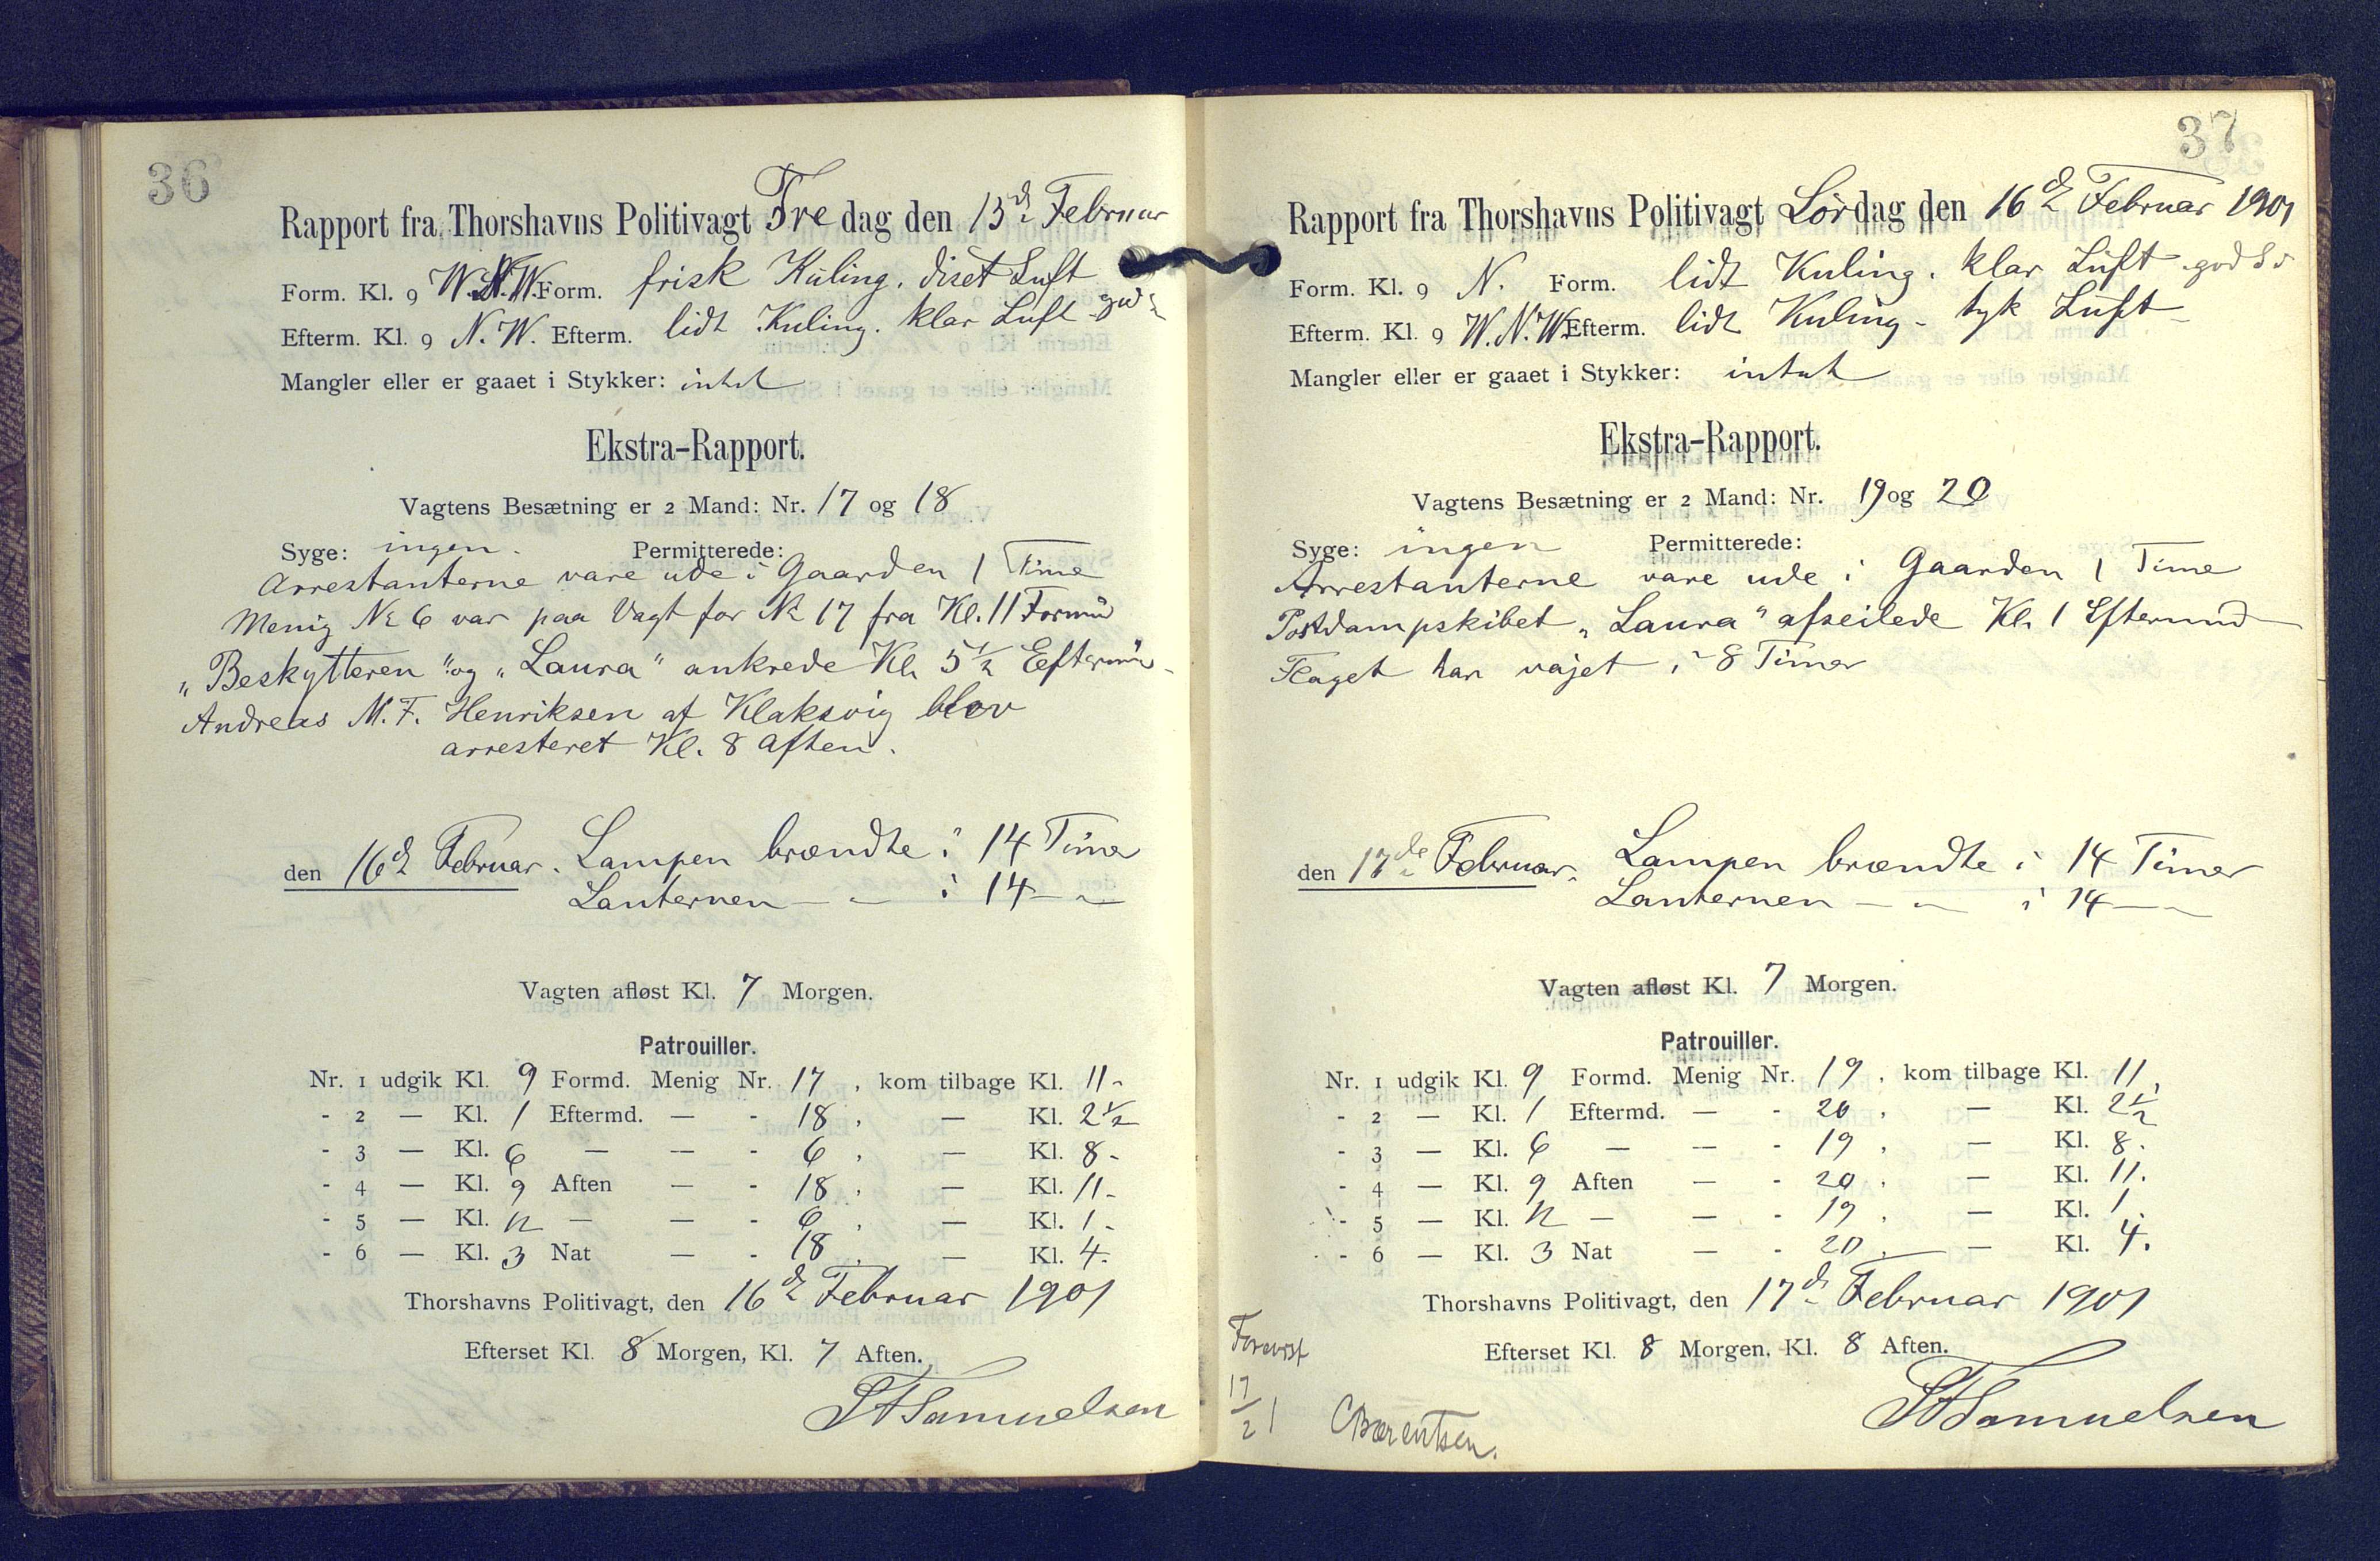 36
Rapport fra Thorshavns Politivagt Fredag den 15de Februar
Form. Kl. 9 W.N.W. Form. frisk Kuling. diset Luft
Efterm. Kl. 9 N.W. Efterm. lidt Kuling. klar Luft
Mangler eller er gaaet i Stykker: intet
Ekstra-Rapport.
Vagtens Besætning er 2 Mand: Nr. 17 og 18
Syge: ingen. Permitterede:
Arrestanterne vare ude i Gaarden 1 Time
Menig No 6 var paa Vagt for No 17 fra Kl. 11 Formd
„Beskytteren" og „Laura" ankrede Kl. 5½ Eftermd
Andreas M.F. Henriksen af Klaksvig blev
arresteret Kl. 8 Aften.
den 16de Februar. Lampen brændte i 14 Timer
Lanternen — " — i 14 — " —
Vagten afløst Kl. 7 Morgen.
Patrouiller.
Nr. 1 udgik Kl. 9 Formd. Menig Nr. 17, kom tilbage Kl. 11-
- 2 — Kl. 1 Eftermd. — - 18, — Kl. 2½
- 3 — Kl. 6 — — - 6, — Kl. 8-
- 4 — Kl. 9 Aften — - 18, — Kl. 11-
- 5 — Kl. 12 — — - 6, — Kl. 1-
- 6 — Kl. 3 Nat — - 18, — Kl. 4-
Thorshavns Politivagt, den 16de Februar 1901
Efterset Kl. 8 Morgen, Kl. 7 Aften.
Samuelsen
37
Rapport fra Thorshavns Politivagt Lördag den 16de Februar 1901
Form. Kl. 9 N. Form. lidt Kuling. klar Luft
Efterm. Kl. 9 W.N.W. Efterm. lidt Kuling - tyk Luft
Mangler eller er gaaet i Stykker: intet
Ekstra-Rapport.
Vagtens Besætning er 2 Mand: Nr. 19 og 20
Syge: ingen Permitterede:
Arrestanterne vare ude i Gaarden 1 Time
Postdampskibet „Laura" afseilede Kl. 1 Eftermd
Flaget har vajet i 8 Timer
den 17de Februar. Lampen brændte i 14 Timer
Lanternen — " — i 14 — " —
Vagten afløst Kl. 7 Morgen.
Patrouiller.
Nr. 1 udgik Kl. 9 Formd. Menig Nr. 19, kom tilbage Kl. 11.
- 2 — Kl. 1 Eftermd. — - 20, — Kl. 2½
- 3 — Kl. 6 — — - 19, — Kl. 8.
- 4 — Kl. 9 Aften — - 20, — Kl. 11.
- 5 — Kl. 12 — — - 19, — Kl. 1.
- 6 — Kl. 3 Nat — - 20, — Kl. 4.
Thorshavns Politivagt, den 17de Februar 1901
Efterset Kl. 8 Morgen, Kl. 8 Aften.
Samuelsen
Forevist
17/2 1
CBærentsen.